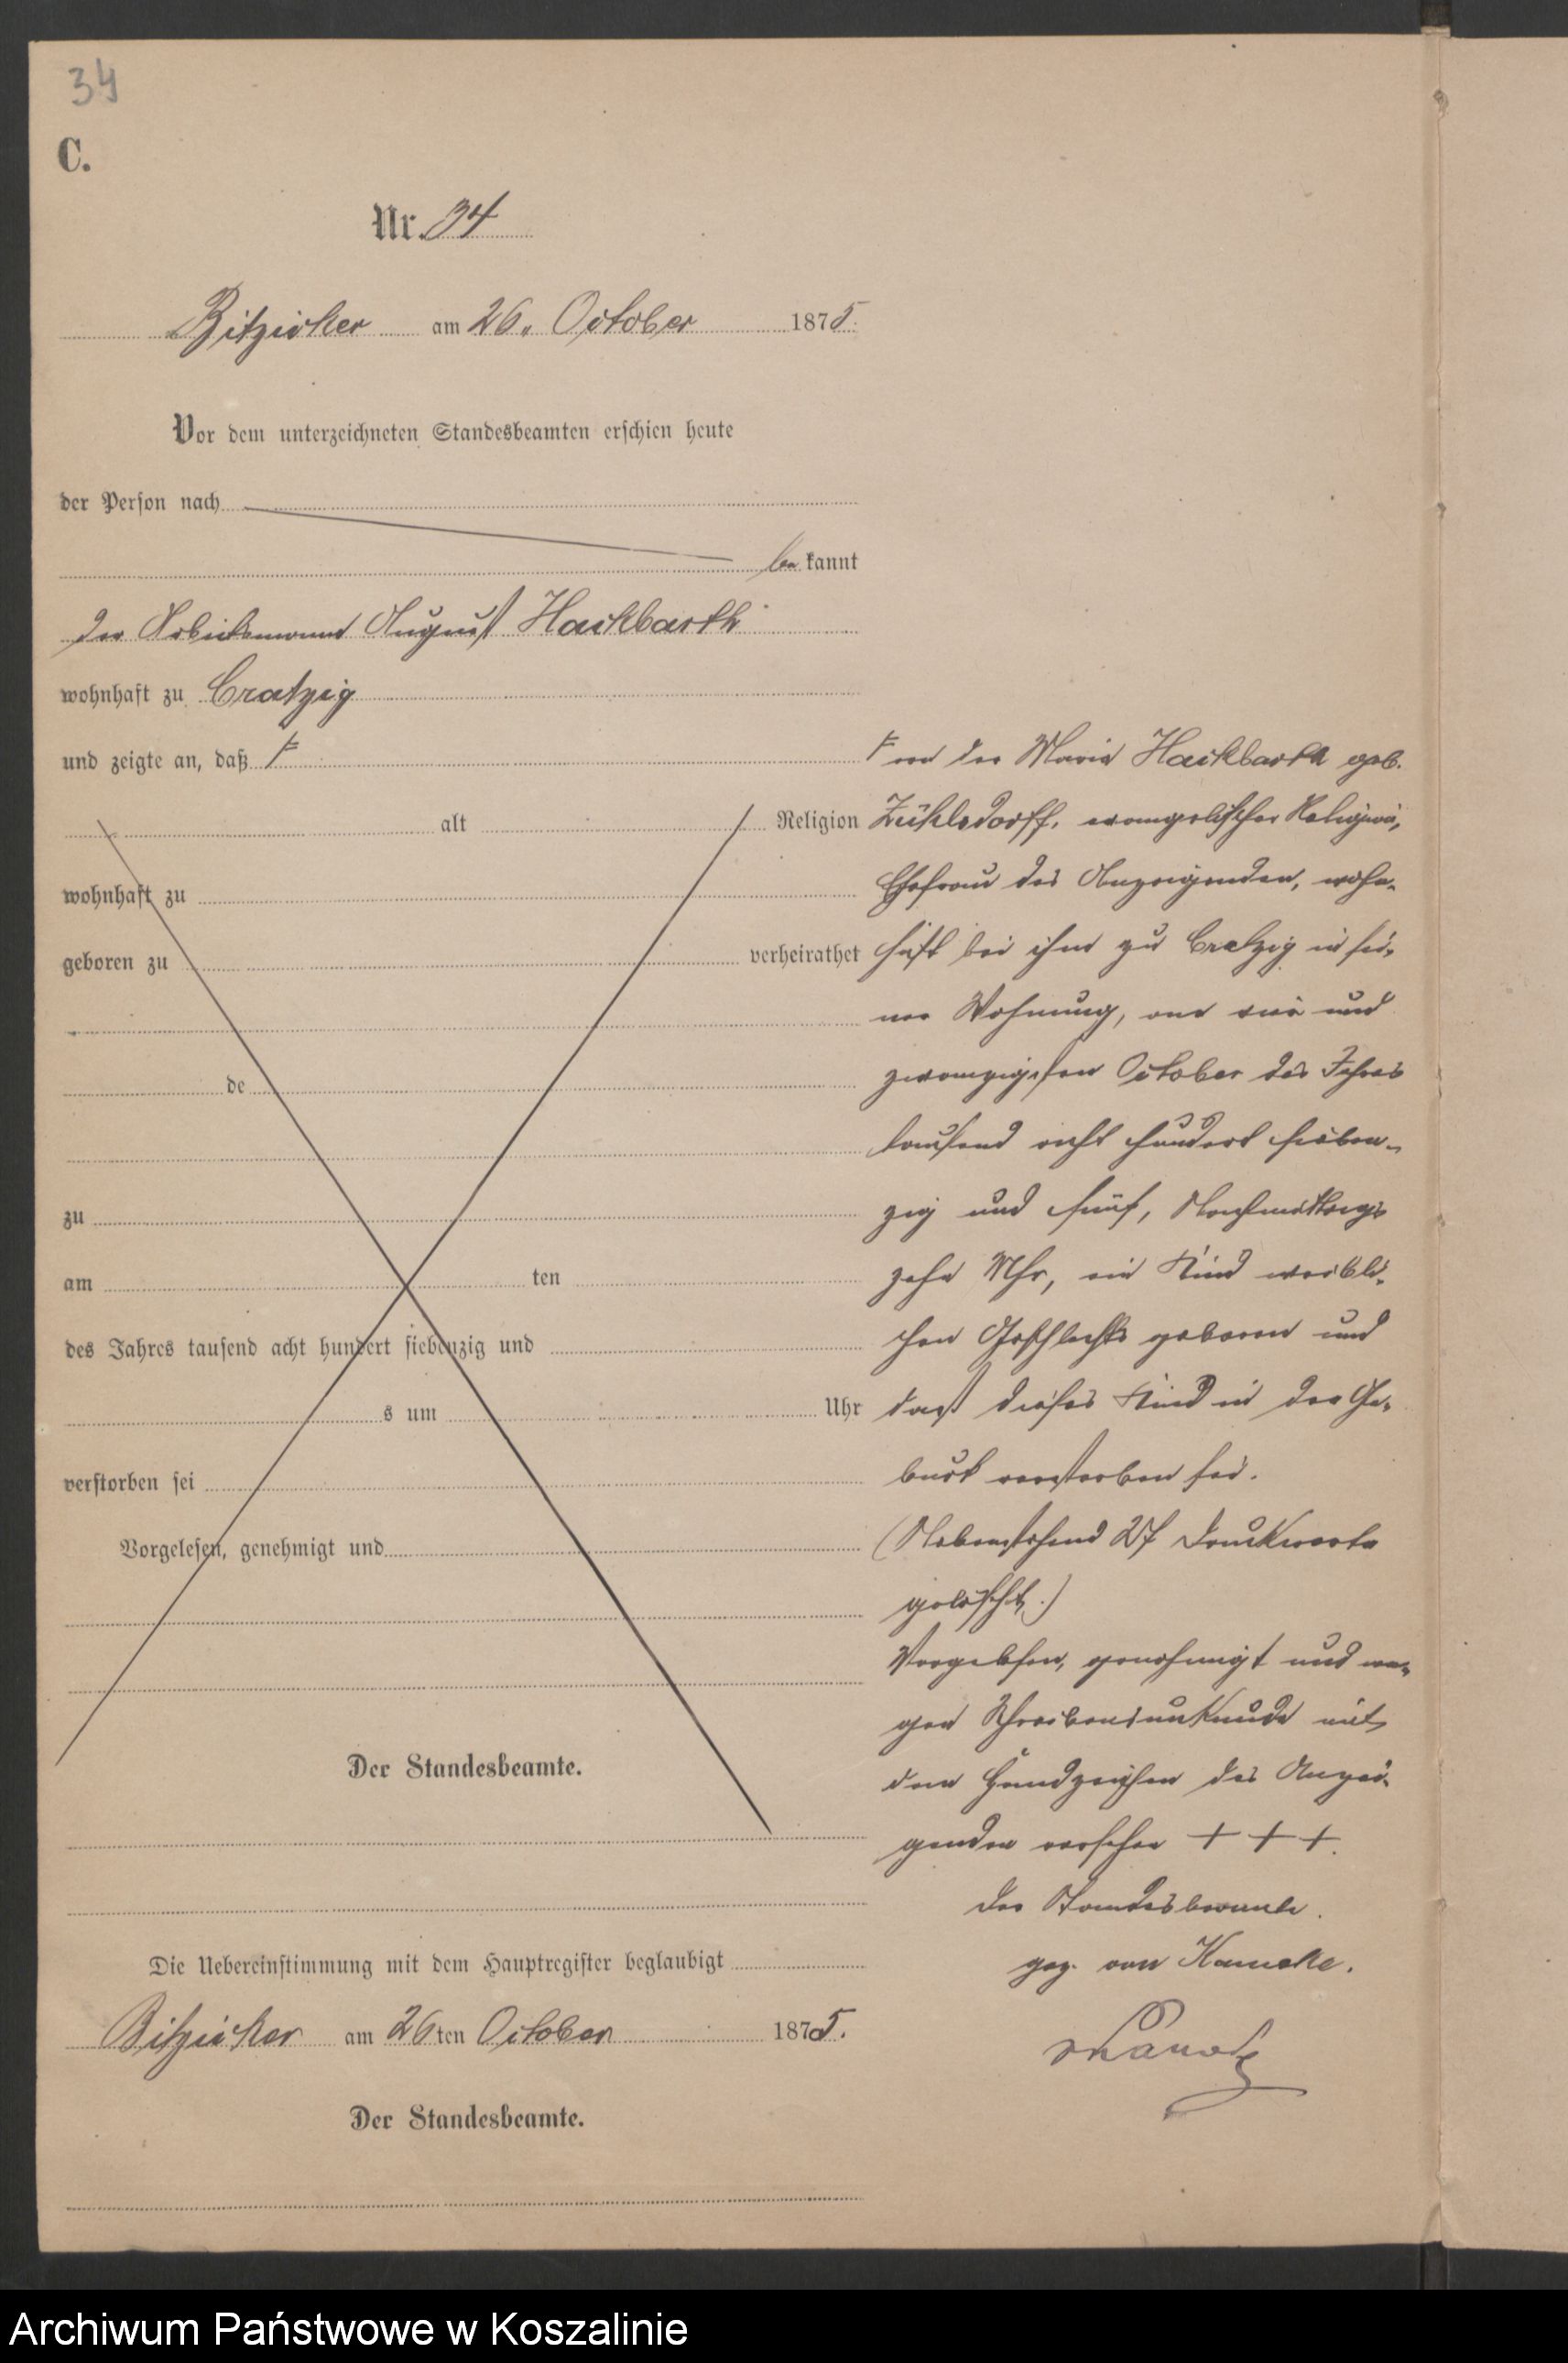 34
C.
Nr. 34
Bitziker am 26. October 1875.
Vor dem unterzeichneten Standesbeamten erschien heute
der Person nach
bekannt
der Arbeitsmann August Hackbarth
wohnhaft zu Cratzig
und zeigte an, daß F
alt Religion
wohnhaft zu
geboren zu verheirathet
de
zu
am ten
des Jahres tausend acht hundert siebenzig und
s um Uhr
verstorben sei
Vorgelesen, genehmigt und
Der Standesbeamte.
F von der Maria Hackbarth geb.
Zühlsdorff, evangelischer Religion,
Ehefrau des Anzeigenden, wohn-
haft bei ihm zu Cratzig in sei-
ner Wohnung, am vier und
zwanzigsten October des Jahres
tausend acht hundert sieben-
zig und fünf, Nachmittags
zehn Uhr, ein Kind weibli-
chen Geschlechts geboren und
daß dieses Kind in der Ge-
burt verstorben sei.
(Nebenstehend 27 Druckworte
gelöscht.)
Vorgelesen, genehmigt und we-
gen Schreibensunkunde mit
dem Handzeichen des Anzei-
genden versehen + + +.
Der Standesbeamte.
gez. von Kameke.
Die Uebereinstimmung mit dem Hauptregister beglaubigt
Bitziker am 26ten October 1875.
Der Standesbeamte.
Archiwum Państwowe w Koszalinie